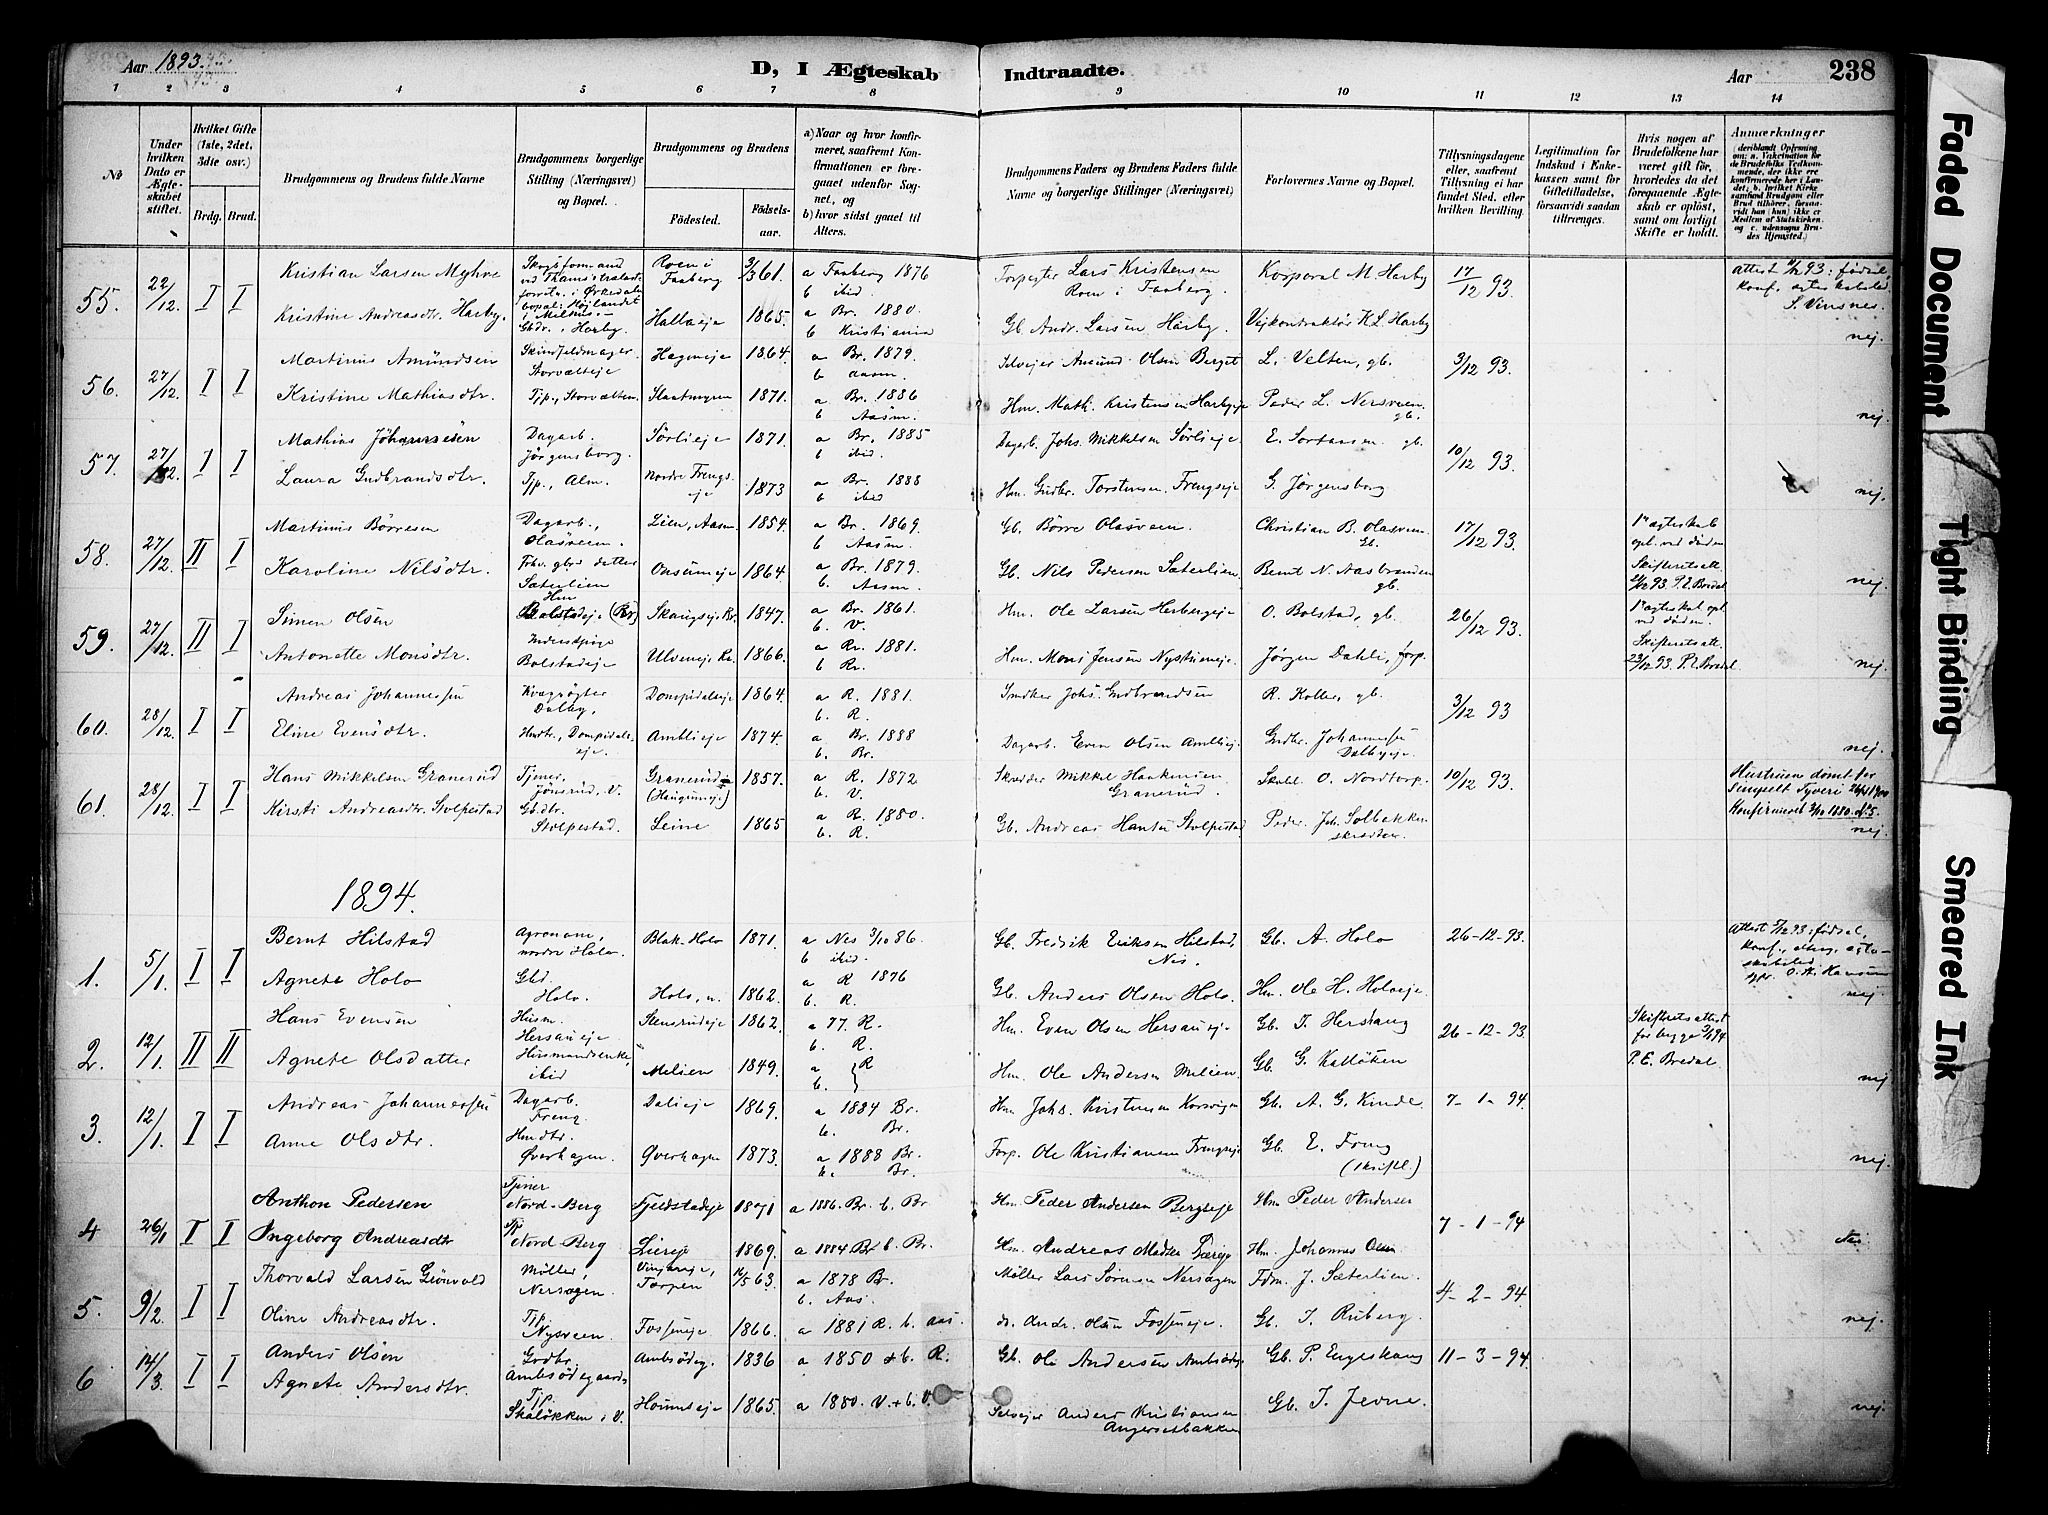 Aar 1893.
D, I Ægteskab Indtraadte.
Aar
238
1 2 3 4 5 6 7 8 9 10 11 12 13 14
No
Under hvilken Dato er Ægteskabet stiftet.
Hvilket Gifte (1ste, 2det, 3die osv.)
Brdg. Brud.
Brudgommens og Brudens fulde Navne
Brudgommens borgerlige Stilling (Næringsvei) og Bopæl.
Brudgommens og Brudens
Fødested.
Fødselsaar.
a) Naar og hvor konfirmeret, saafremt Konfirmationen er foregaaet udenfor Sognet, og
b) hvor sidst gaaet til Alters.
Brudgommens Faders og Brudens Faders fulde Navne og borgerlige Stillinger (Næringsvei)
Forlovernes Navne og Bopæl.
Tillysningsdagene eller, saafremt Tillysning ei har fundet Sted, efter hvilken Bevilling.
Legitimation for Indskud i Enkekassen samt for Giftetilladelse, forsaavidt saadan tiltrænges.
Hvis nogen af Brudefolkene har været gift før, hvorledes da det foregaaende Ægteskab er opløst, samt om lovligt Skifte er holdt.
Anmærkninger (deriblandt Oplysning om: a. Vakcination for de Brudefolks Vedkommende, der ikke ere konfirmerede her i Landet; b. hvilket Kirkesamfund Brudgom eller Brud tilhører, forsaavidt han (hun) ikke er Medlem af Statskirken, og c. udensogns Brudes Hjemsted.)
55. 22/12. I I Kristian Larsen Myhre
Roen i Faaberg 3/3 61. a Faaberg 1876 b ibid.
Lars Kristensen Roen i Faaberg. Korporal M. Harby 17/12 93.
Kristine Andreasdtr. Harby. Gbdr., Harby. 1865. a Br. 1880. b Kristiania
Gb. Andr. Larsen Harby. Vejkontraktør K. L. Harby nej.
56. 27/12. I I Martinus Amundsen Storvælteje 1864. a Br. 1879. b Aasm.
Selvejer Amund Olsen Berget L. Velten, gb. 3/12 93.
Kristine Mathiasdtr. Tjp., Storvælten 1871. a Br. 1886 b Aasm.
Hm. Math. Kristensen Harbyeje Peder L. Nersveen gb. nej.
57. 27/12. I I Mathias Johannesen Dagarb. Jørgensborg. Sørlieje 1871. a Br. 1885 b ibid.
Dagarb. Johs. Mikkelsen Sørlieje gb. 10/12 93.
Laura Gudbrandsdtr. Tjp., Alm. Nordre Frengseje 1873 a Br. 1888 b ibid
Hm. Gudbr. Torstensen Frengseje G. Jørgensborg nej.
58. 27/12. II I Martinus Børresen Dagarb., Olasveen. Lien, Aasm. 1854. a Br. 1869. b Aasm.
Gb. Børre Olasveen. Christian B. Olasveen Gb. 17/12 93. 1e ægteskab opl. ved døden
Karoline Nilsdtr. Sæterlien 1864. a Br. 1879. b. Aasm.
Gb. Nils Pedersen Sæterlien Bernt N. Aasbrenden gb. Skifteretsatt. P. E. Bredal nej.
59. 27/12. II I Simen Olsen Hm Bolstadeje (Br) Skaugseje Br. 1847. a Br. 1861. b. V.
Hm. Ole Larsen Herbergeje O. Bolstad, gb. 26/12 93. 1e ægteskab opl. ved døden.
Antonette Monsdtr. Inderstpige Bolstadeje Ulveneje Ra. 1866. a R. 1881. b R.
Hm. Mons Jensen Nystueneje. Jørgen Dahli, forp. Skifteretsatt. 23/12 93. P. E. Bredal nej.
60. 28/12. I I Andreas Johannesen Dalby. Dompidalseje 1864. a R. 1881. b. R.
Johs. Gudbrandsen R. Koller, gb. 3/12 93
Eline Evensdtr. Hmdtr., Dompidalseje. Amblieje 1874. a Br. 1888 b. Br.
Dagarb. Even Olsen Amblieje. Gudbr. Johannesen Dalbyeje. nej.
61. 28/12. I I Hans Mikkelsen Granerud Tjener, Jønsrud, V. Granerudeje (Haugsmeje) 1857. a R. 1872 b. V.
Skrædder Mikkel Haakensen Granerud. Skoll. O. Nordtorp. 10/12 93. Hustruen dømt for simpelt Tyveri
Kirsti Andreasdtr. Stolpestad Gbdtr. Stolpestad. Leine 1865 a R. 1880. b. R.
Gb. Andreas Hansen Stolpestad Peder Joh. Solbakken skrædder. Konfirmeret 3/10 1880. No 5. nej.
1894.
1. 5/1. I I Bernt Hilstad Agronom, nordre Holo. Blak-Holo 1871. a Nes 3/10 86. b ibid.
Gb. Fredrik Eriksen Hilstad, Nes. Gb. A. Holo 26-12-93.
Agnete Holo Gbd. Holo. Holo, n. 1862. a R 1876 b. R.
Gb. Anders Olsen Holo. Hm. Ole H. Holoeje. nej.
2. 12/1. II II Hans Evensen Husm. Hersaugeje Stensrudeje 1862. a 77. R. b. R.
Hm. Even Olsen Hersaugeje. Gb. J. Hershaug 26-12-93. Skifteretsattest for begge 5/1 94
Agnete Olsdatter Husmandsenke, ibid Melien 1849. a R b.
Hm. Ole Andersen Melien. Gb. G. Kalløken P. E. Bredal nej
3. 12/1. I I Andreas Johannesen Dagarb. Freng. Dalieje 1869. a 1884 Br. b. Br.
Hm Johs. Kristensen Korsvigen Gb. A. G. Kinde. 7-1-94.
Anne Olsdtr. Hmdtr. Øverhagen. Øverhagen 1873. a 1888 Br. b. Br.
Forp. Ole Kristiansen Frengseje Gb. E. Freng nej.
4 26/1 I I Anthon Pedersen Tjener Nord-Berg Fjeldstadeje 1871 a 1886. Br. b. Br
Hm Peder Andersen Bergseje Hm Peder Andersen 7-1-94
Ingeborg Andreasdtr Tjp Nord-Berg Liereje 1869. a 1884 Br b. Br.
Hm. Andreas Madsen Hm. Johannes Olsen Nei
5. 9/2. I I Thorvald Larsen Grønvold Møller, Nersagen. Torpen 63. a 1878 Br. b. Aas.
Møller Lars Sørensen Nersagen Fdm. J. Sæterlien. 4-2-94.
Oline Andreasdtr. Tjp. Nysveen. Fosseneje 1866. a 1881 R. b. Aas.
Andr. Olsen Fosseneje. Gb. J. Ruberg. nej.
6 14/3. I I Anders Olsen Gbdbr. Ambsødegaarden Ambsødeg. 1836 a 1850 + b. R.
Gb. Ole Andersen Ambsødeg. Gb. P. Engeskaug 11-3-94.
Agnete Andersdtr. Tjp. Skaløkken i V. Hommseje 1865. a 1880. V. + b. V.
Selvejer Anders Kristiansen Angersetbakken Gb. J. Jevne. nej.
Faded Document
Tight Binding
Smeared Ink